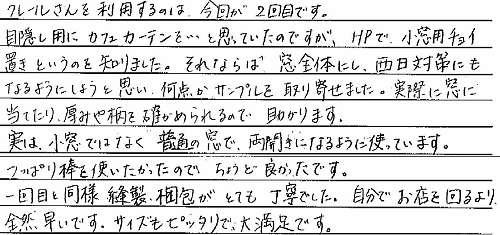 クレールさんを利用するのは、今回が2回目です。
目隠し用にカフェカーテンを…と思っていたのですが、HPで、小窓用チョイ
置きというのを知りました。それならば 窓全体にし、西日対策にも
なるようにしようと思い、何点かサンプルを取り寄せました。実際に窓に
当てたり、厚みや柄を確かめられるので 助かります。
実は、小窓ではなく 普通の窓で、両開きになるように使っています。
つっぱり棒を使いたかったので ちょうど良かったです。
一回目と同様 縫製、梱包がとても丁寧でした。自分でお店を回るより、
全然早いです。サイズもピッタリで、大満足です。